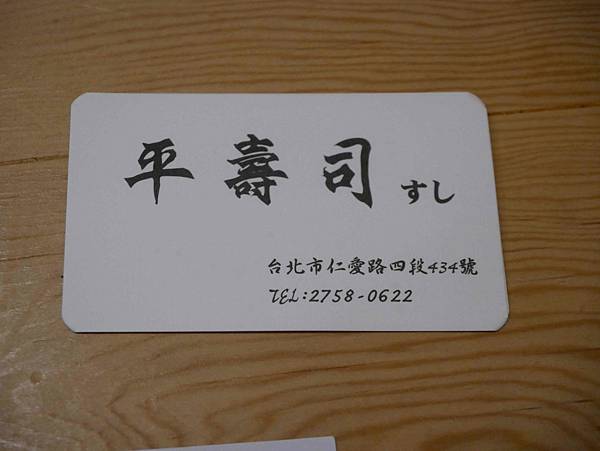 平壽司 すし
台北市仁愛路四段434號
TEL:2758-0622